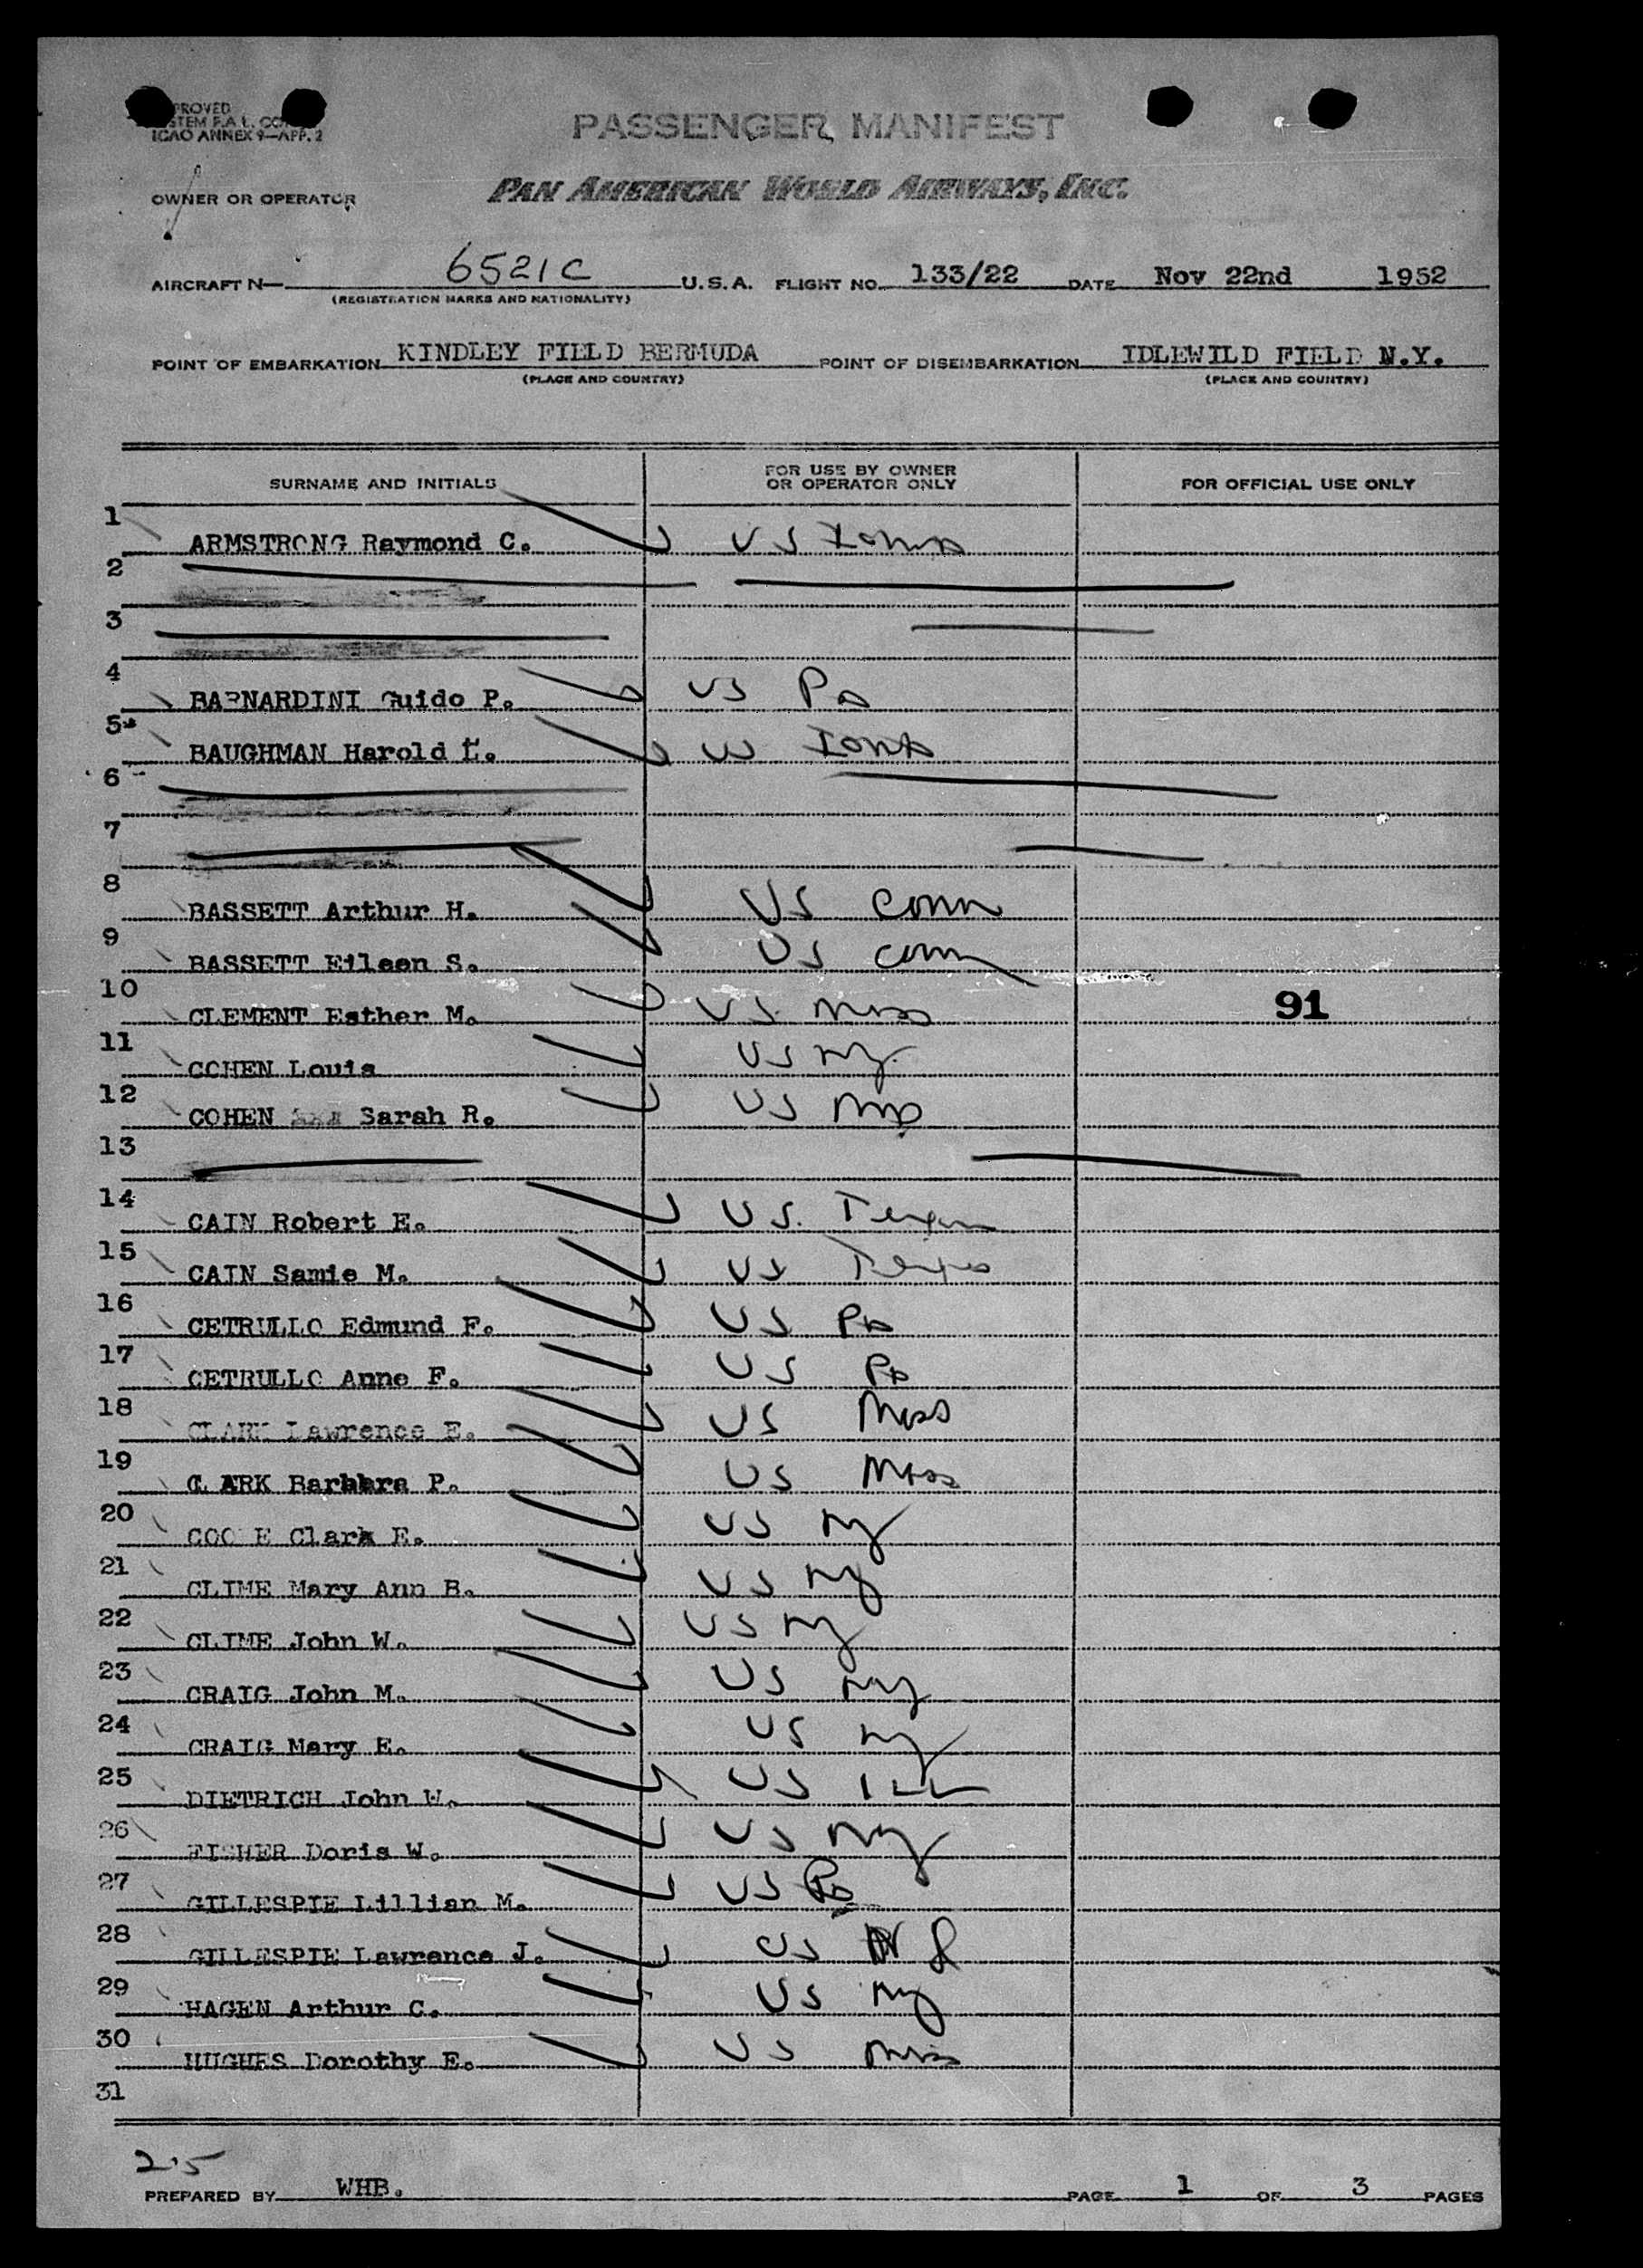 PROVED
STEM F.A.L. CO
ICAO ANNEX 9—APP. 2
PASSENGER MANIFEST
OWNER OR OPERATOR PAN AMERICAN WORLD AIRWAYS, INC.
AIRCRAFT N— 6521C U.S.A. FLIGHT NO. 133/22 DATE Nov 22nd 1952
(REGISTRATION MARKS AND NATIONALITY)
POINT OF EMBARKATION KINDLEY FIELD BERMUDA POINT OF DISEMBARKATION IDLEWILD FIELD N.Y.
(PLACE AND COUNTRY) (PLACE AND COUNTRY)
SURNAME AND INITIALS FOR USE BY OWNER OR OPERATOR ONLY FOR OFFICIAL USE ONLY
1 ARMSTRONG Raymond C. US Iowa
2
3
4 BARNARDINI Guido P. US Pa
5 BAUGHMAN Harold L. US Iowa
6
7
8 BASSETT Arthur H. US Conn
9 BASSETT Eileen S. US Conn
10 CLEMENT Esther M. US Mass 91
11 COHEN Louis US NY
12 COHEN Sarah R. US
13
14 CAIN Robert E. US. Texas
15 CAIN Samie M. US Texas
16 CETRULLO Edmund F. US Pa
17 CETRULLO Anne F. US Pa
18 CLARK Lawrence E. US Mass
19 CLARK Barbara P. US Mass
20 Clark E. US NY
21 CLIME Mary Ann B. US NY
22 CLIME John W. US NY
23 CRAIG John M. US NY
24 CRAIG Mary E. US NY
25 DIETRICH John W. US ILL
26 FISHER Doris W. US NY
27 GILLESPIE Lillian M. US Pa
28 GILLESPIE Lawrence J. US NJ
29 HAGEN Arthur C. US NY
30 HUGHES Dorothy E. US Mass
31
25
PREPARED BY WHB. PAGE 1 OF 3 PAGES